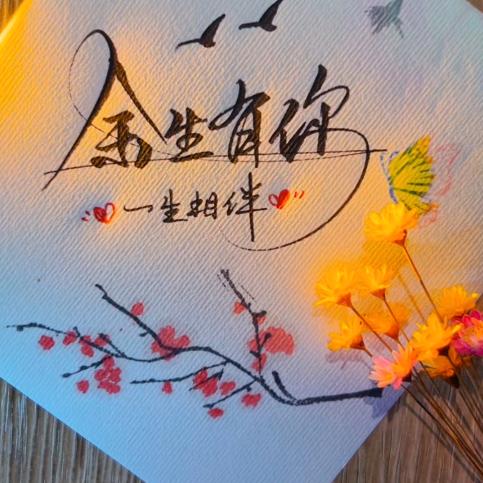 余生有你
一生相伴